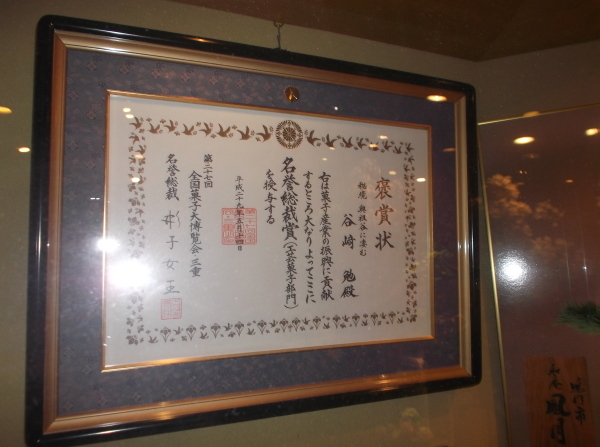 褒賞状
谷崎 勉殿
右は菓子産業の振興に貢献
するところ大なりよってここに
名誉総裁賞(工芸菓子部門)
を授与する
平成二十九年五月十四日
第二十七回
全国菓子大博覧会三重
名誉総裁
子女王